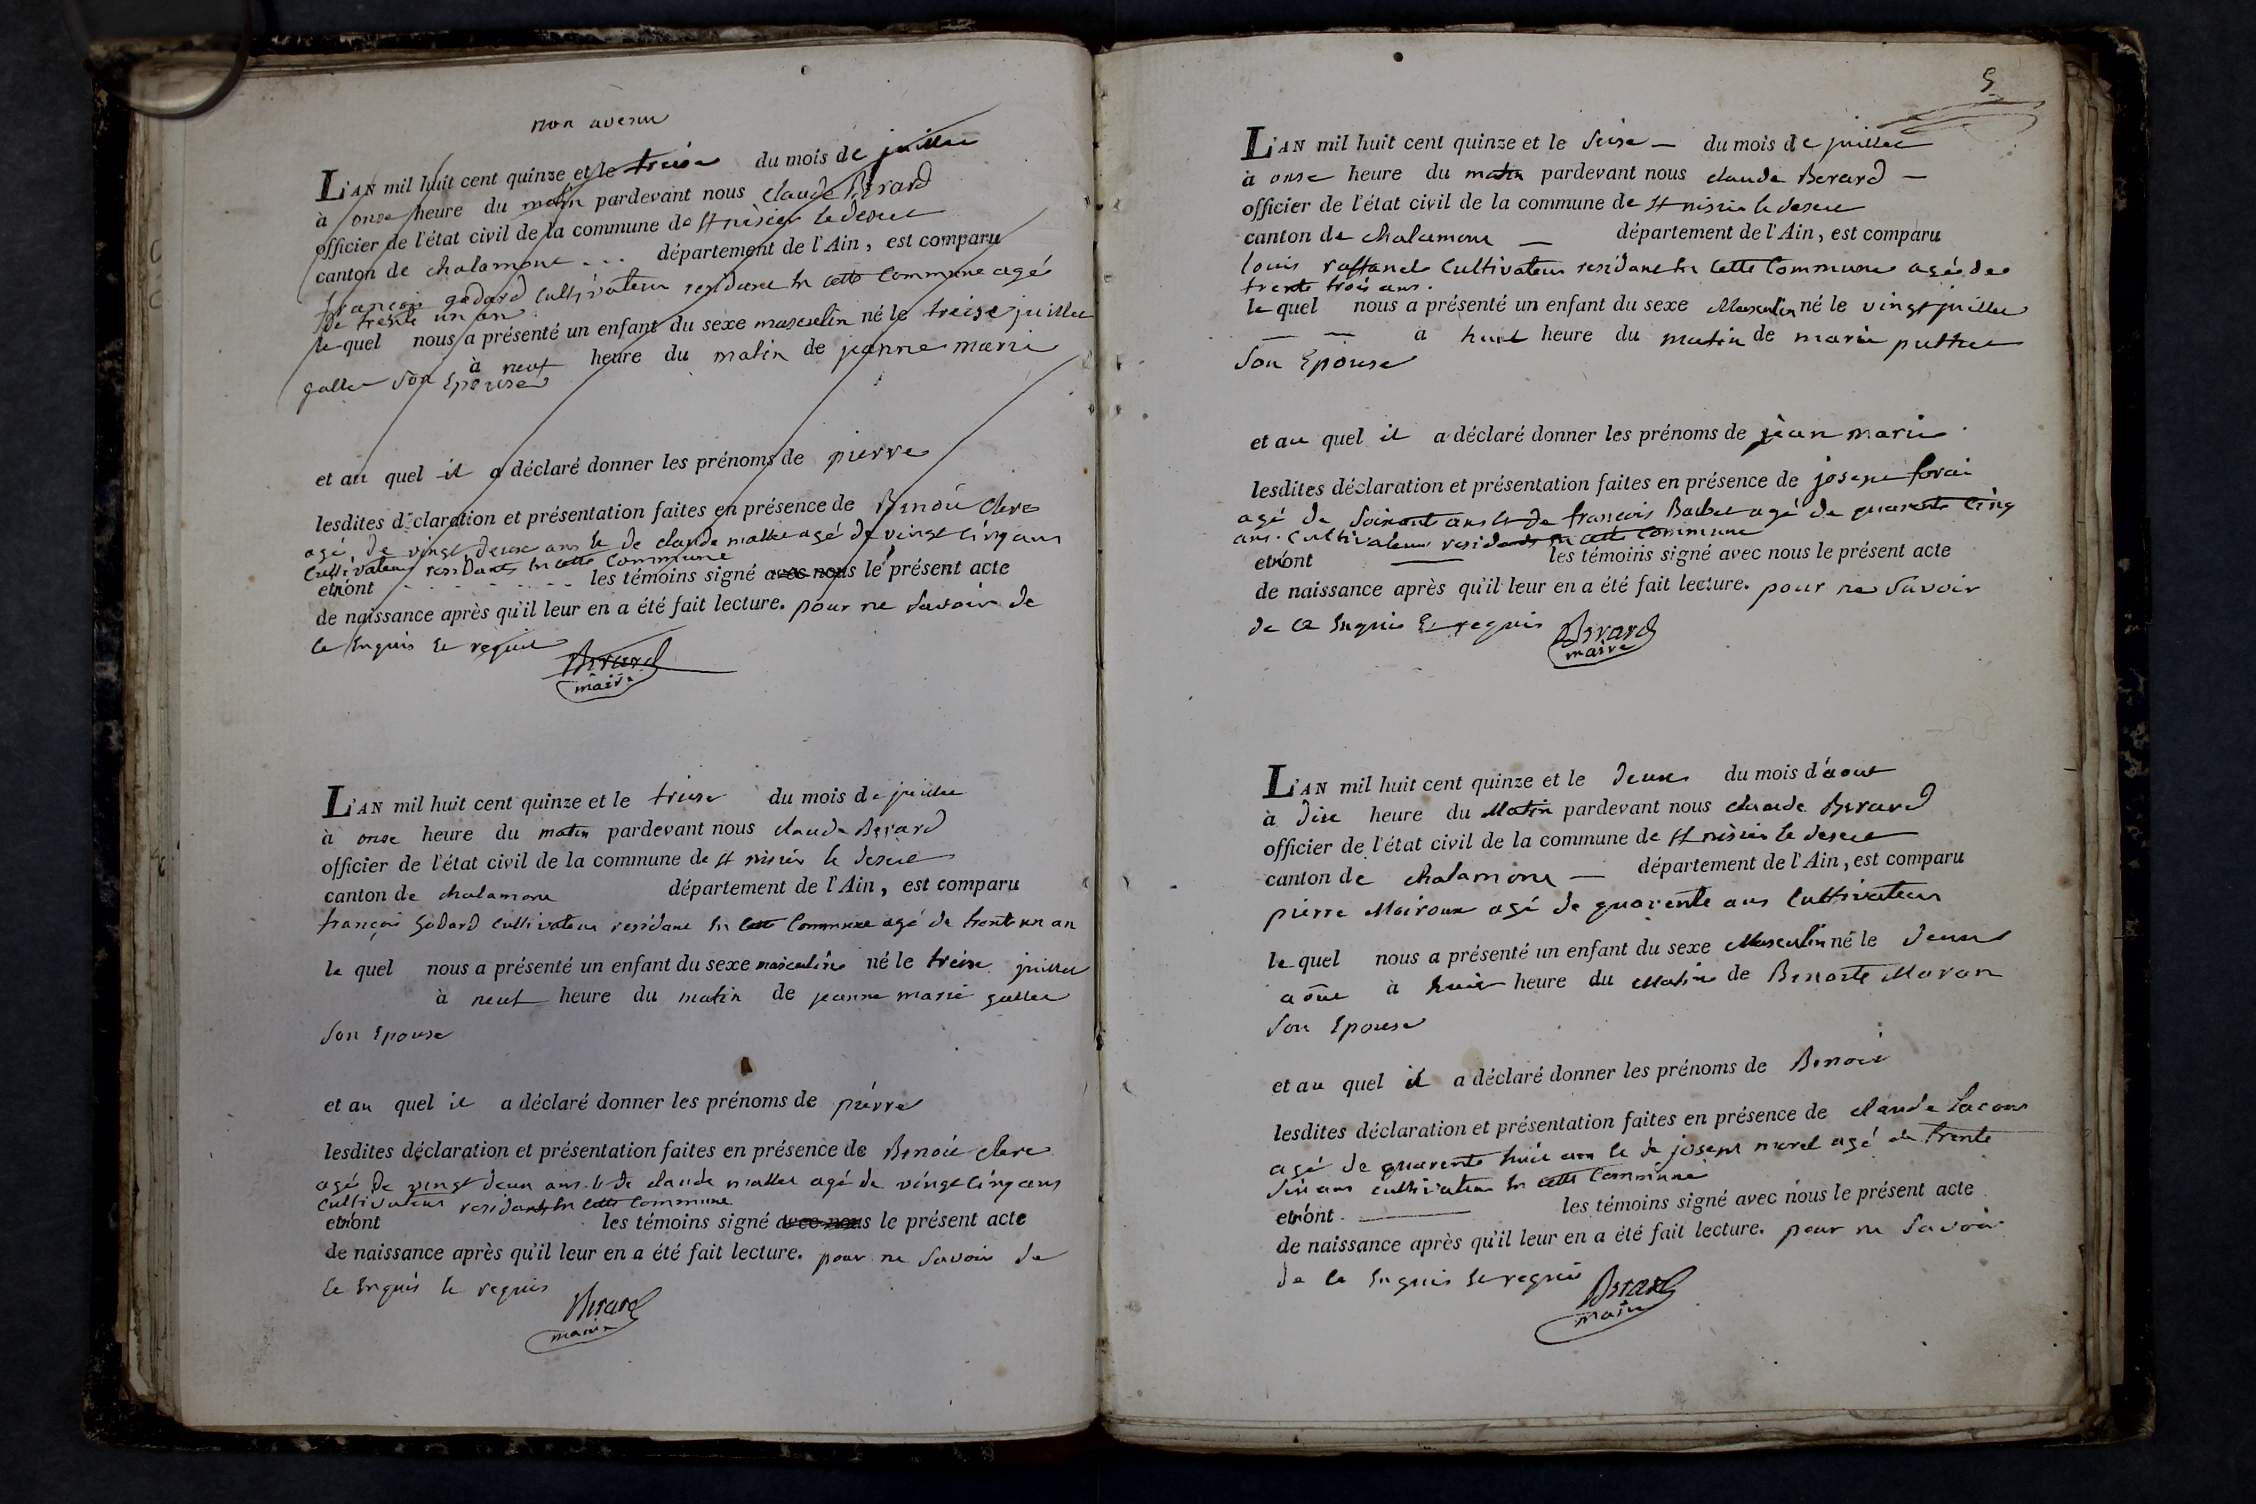 non avenu
L'AN mil huit cent quinze et le treise du mois de juillet
à onse heure du matin pardevant nous claude Berard
officier de l'état civil de la commune de St nisier le desert
canton de chalamont ... département de l'Ain, est comparu
françois godard cultivateur residant en cette commune agé
de trente un an
le quel nous a présenté un enfant du sexe masculin né le treise juillet
à neuf heure du matin de jeanne marie
gallet son Epouse
et au quel il a déclaré donner les prénoms de pierre
lesdites déclaration et présentation faites en présence de Benoit clere
agé de vingt deux ans et de claude mallet agé de vingt cinq ans
cultivateurs residants en cette commune
et n'ont les témoins signé avec nous le présent acte
de naissance après qu'il leur en a été fait lecture. pour ne savoir de
ce Enquis et requit
Berard
maire
L'AN mil huit cent quinze et le treise du mois de juillet
à onse heure du matin pardevant nous claude Berard
officier de l'état civil de la commune de St nisier le desert
canton de chalamont département de l'Ain, est comparu
françois Godard cultivateur residant en cette commune agé de trente un an
le quel nous a présenté un enfant du sexe masculin né le treise juillet
à neuf heure du matin de jeanne marie gallet
son Epouse
et au quel il a déclaré donner les prénoms de pierre
lesdites déclaration et présentation faites en présence de Benoit clere
agé de vingt deux ans et de claude mallet agé de vingt cinq ans
cultivateurs residants en cette commune
et n'ont les témoins signé avec nous le présent acte
de naissance après qu'il leur en a été fait lecture. pour ne savoir de
ce Enquis et requis
Berard
maire
5
L'AN mil huit cent quinze et le seise du mois de juillet
à onse heure du matin pardevant nous claude Berard
officier de l'état civil de la commune de St nisier le desert
canton de chalamont département de l'Ain, est comparu
louis raffanel cultivateur residant en cette commune agé de
trente trois ans.
le quel nous a présenté un enfant du sexe Masculin né le vingt juillet
à huit heure du matin de marie puttet
son Epouse
et au quel il a déclaré donner les prénoms de jean marie
lesdites déclaration et présentation faites en présence de joseph forai
agé de soixante ans et de françois Barbet agé de quarente cinq
ans. cultivateurs residants en cette commune
et n'ont les témoins signé avec nous le présent acte
de naissance après qu'il leur en a été fait lecture. pour ne savoir
de ce Enquis et requis
Berard
maire
L'AN mil huit cent quinze et le deux du mois d'aout
à dix heure du Matin pardevant nous claude Berard
officier de l'état civil de la commune de St nisier le desert
canton de chalamont département de l'Ain, est comparu
pierre Moiroux agé de quarente ans cultivateur
le quel nous a présenté un enfant du sexe Masculin né le deux
aout à huit heure du Matin de Benoite Moran
son Epouse
et au quel il a déclaré donner les prénoms de Benoit
lesdites déclaration et présentation faites en présence de claude Lacour
agé de quarente huit ans et de joseph morel agé de trente
six ans cultivateur en cette commune
et n'ont les témoins signé avec nous le présent acte
de naissance après qu'il leur en a été fait lecture. pour ne savoir
de ce Enquis et requis
Berard
maire